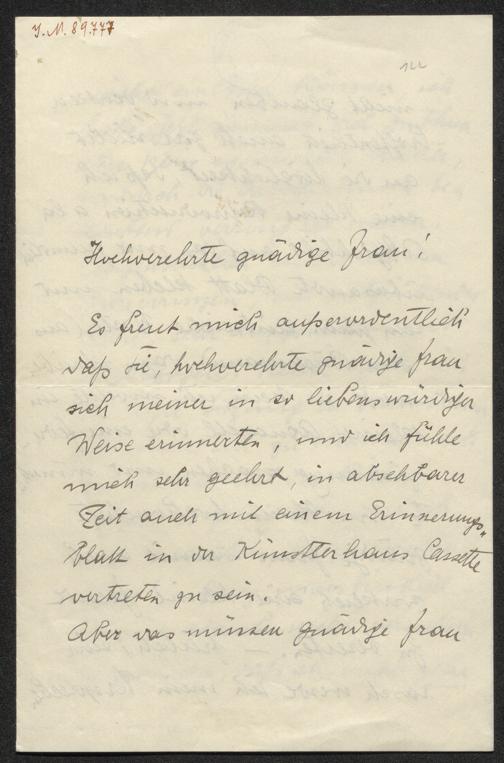 J. N. 89.777
122
Hochverehrte gnädige Frau!
Es freut mich außerordentlich
daß Sie, hochverehrte gnädige Frau
sich meiner in so liebenswürdiger
Weise erinnerten, und ich fühle
mich sehr geehrt, in absehbarer
Zeit auch mit einem Erinnerungs-
blatt in der Künstlerhaus Cassette
vertreten zu sein.
Aber das müssen gnädige Frau